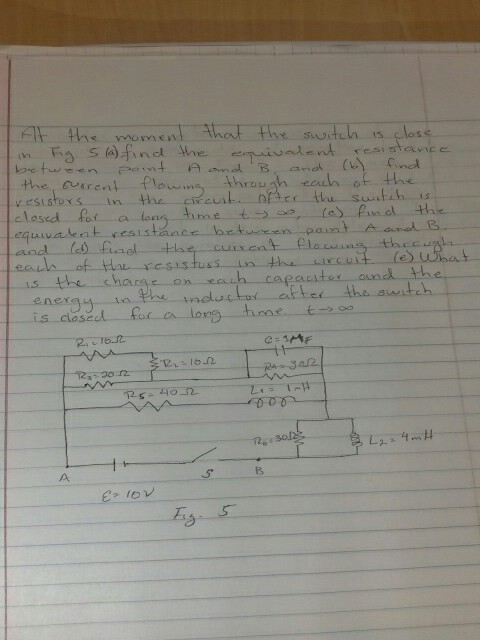 At the moment that the switch is close
in Fig 5 (a) find the equivalent resistance
between point A and B, and (b) find
the current flowing through each of the
resistors in the circuit. After the switch is
closed for a long time t → ∞, (c) find the
equivalent resistance between point A and B.
and (d) find the current flowing through
each of the resistors in the circuit (e) What
is the charge on each capacitor and the
energy in the inductor after the switch
is closed for a long time t → ∞
R₁ = 10Ω
C = 1MF
R₂ = 10Ω
R₃ = 20Ω
R₄ = 30Ω
R5 = 40Ω
L₁ = 1mH
R₆ = 30Ω
L₂ = 4mH
A
S
B
ε = 10V
Fig. 5